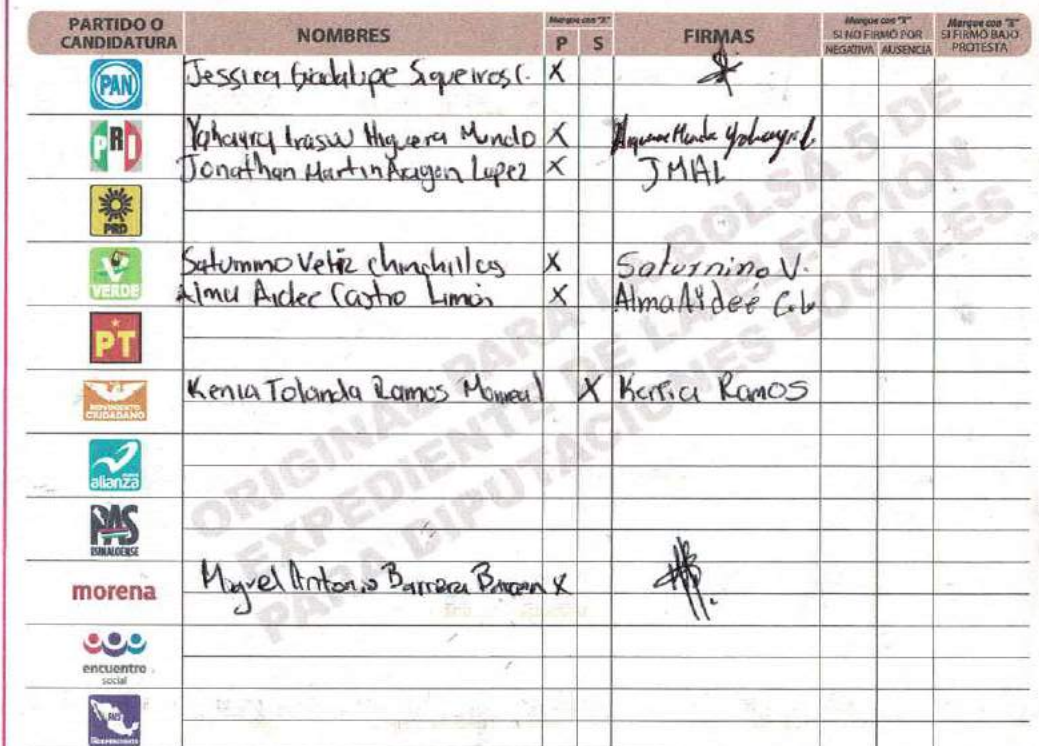 PARTIDO O CANDIDATURA NOMBRES Marque con "X" P S FIRMAS Marque con "X" SI NO FIRMÓ POR NEGATIVA AUSENCIA Marque con "X" SI FIRMÓ BAJO PROTESTA
PAN Jessica Guadalupe Siqueiros C. X
PRI Yahayra Irasu Higuera Mundo X Higuera Mundo Yahayra I.
Jonathan Martin Aragon Lopez X JMAL
PRD
VERDE Saturnino Vetiz chinchillas X Saturnino V.
Alma Aidee Castro Limón X Alma Aydeé C.L
PT
MOVIMIENTO CIUDADANO Kenia Yolanda Ramos Monreal X Kenia Ramos
nueva alianza
PAS SINALOENSE
morena Miguel Antonio Barrera X
encuentro social
PAIS INDEPENDIENTE
ORIGINAL PARA LA BOLSA 5 DE
EXPEDIENTE DE LA ELECCIÓN
PARA DIPUTACIONES LOCALES